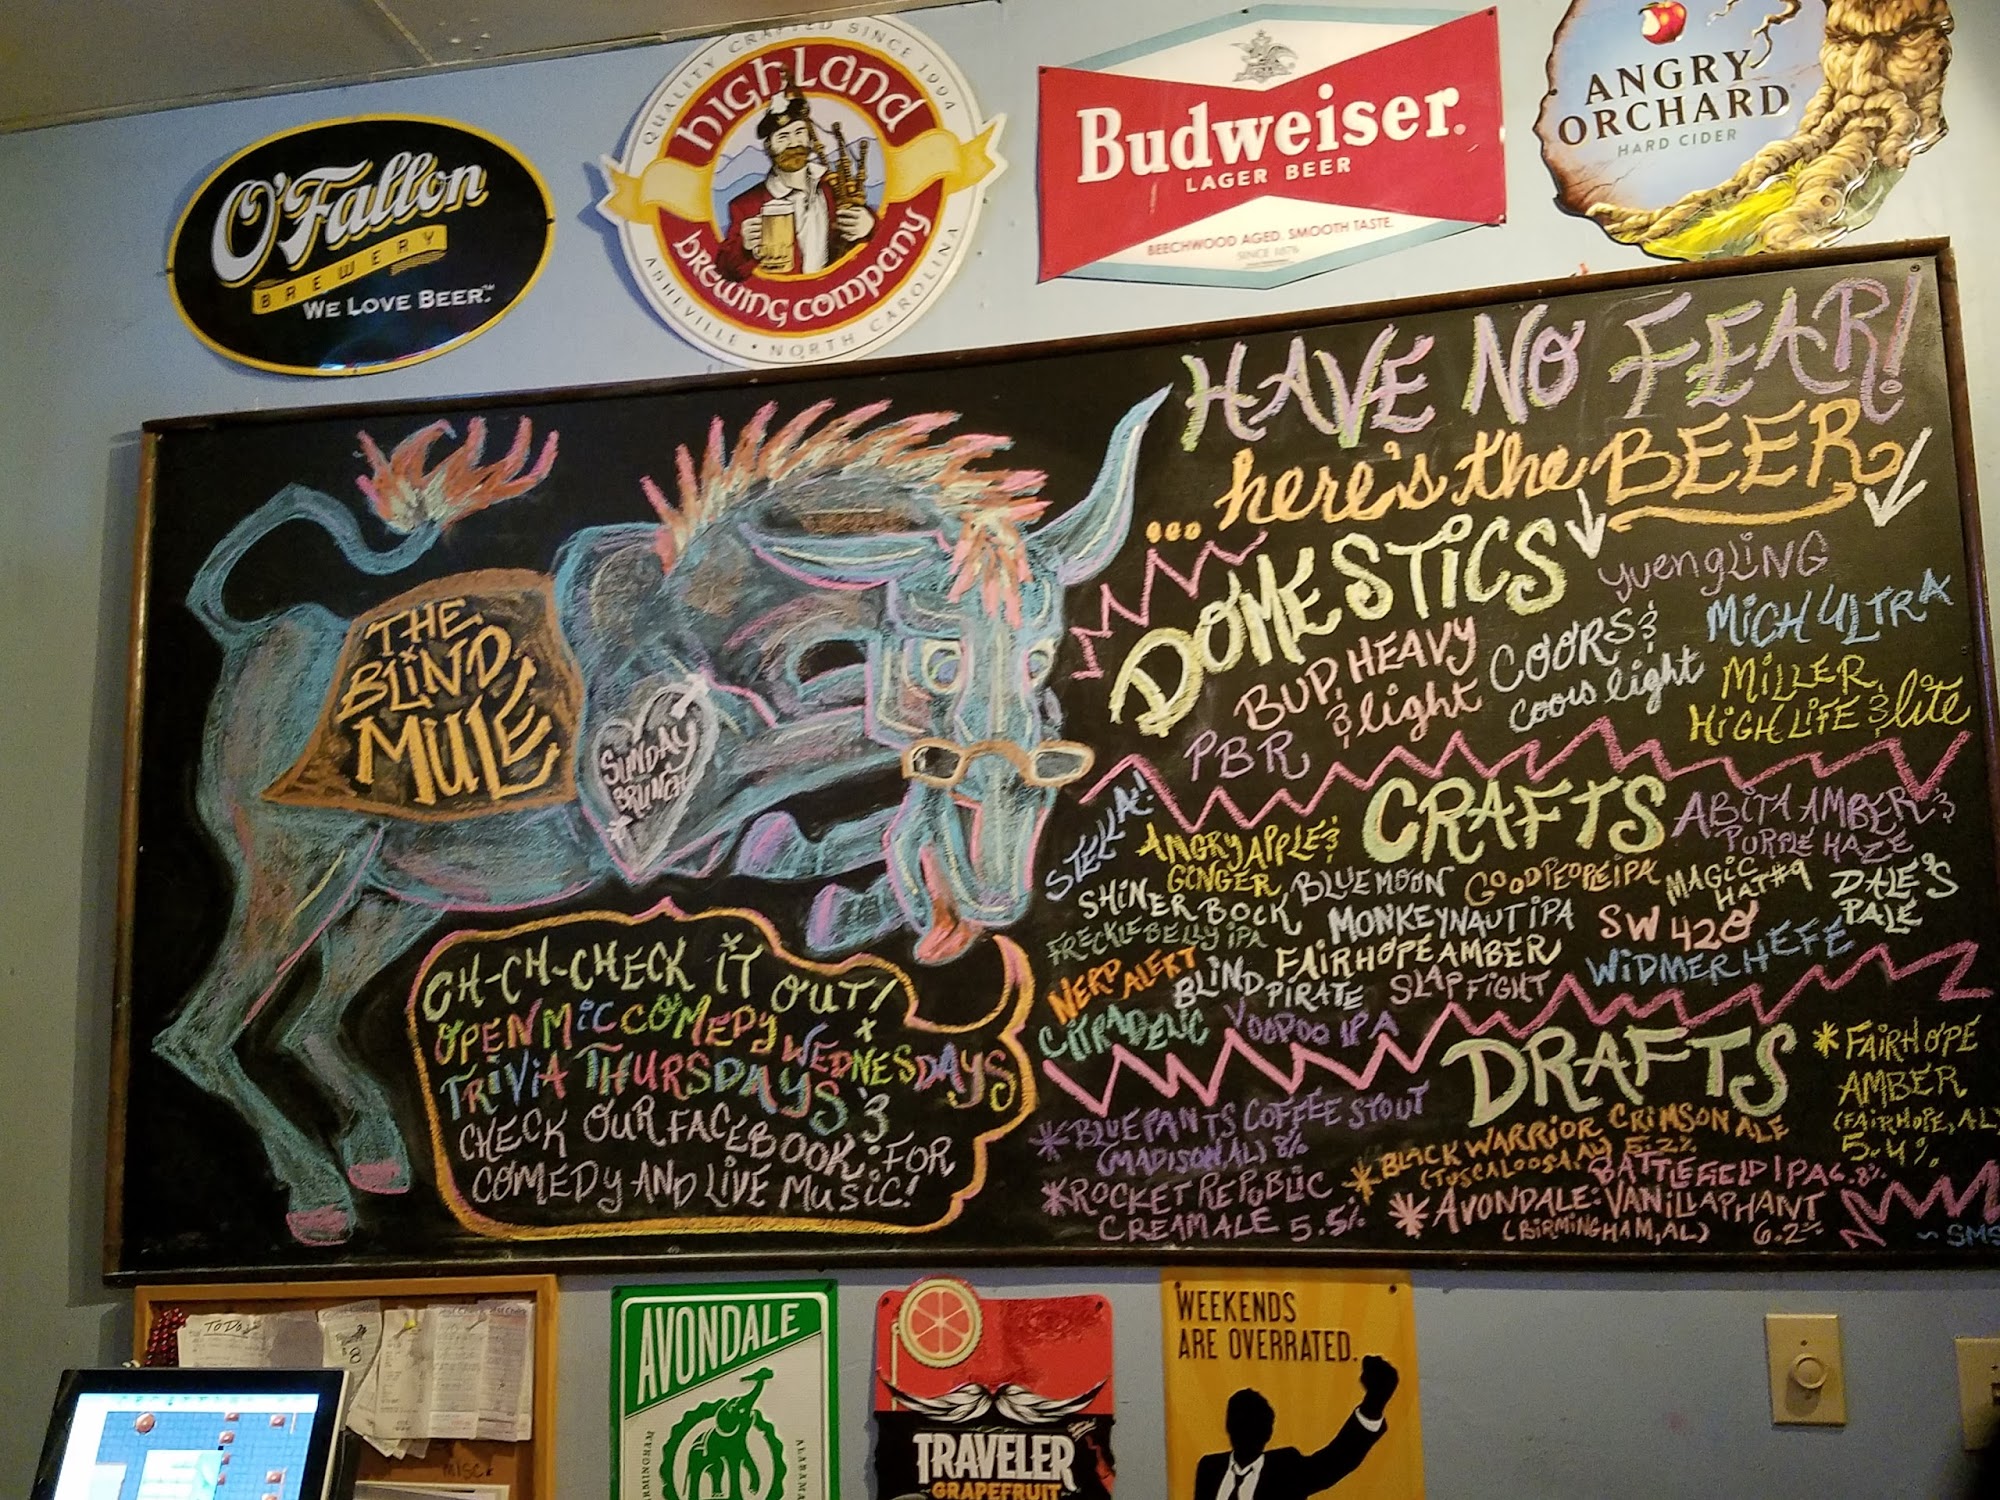 O'Fallon
BREWERY
WE LOVE BEER.™
QUALITY CRAFTED SINCE 1994
highland
brewing company
ASHEVILLE • NORTH CAROLINA
Budweiser®
LAGER BEER
BEECHWOOD AGED. SMOOTH TASTE.
SINCE 1876
ANGRY
ORCHARD
HARD CIDER
HAVE NO FEAR!
... here's the BEER
DOMESTICS
yuengLiNG
BUD HEAVY
& light
COORS &
coors light
MiCH ULTRA
MiLLER
HiGH LiFE & lite
PBR
CRAFTS
STELLA!
ANGRY APPLE &
GINGER
ABITA AMBER &
PURPLE HAZE
SHiNER BOCK
BLUE MOON
GOOD PEOPLE iPA
MAGiC
HAT #9
DALE'S
PALE
FRECKLE BELLY iPA
MONKEYNAUT iPA
SW 420
NERD ALERT
FAiRHOPE AMBER
WiDMER HEFE
BLIND PiRATE
SLAPFiGHT
CiTRADELiC
VOODOO IPA
DRAFTS
* BLUEPANTS COFFEE STOUT
(MADISON, AL) 8%
* ROCKET REPUBLIC
CREAM ALE 5.5%
* BLACK WARRiOR CRiMSON ALE
(TUSCALOOSA, AL) 5.2%
BATTLEFiELD IPA 6.8%
* AVONDALE: VANiLLAPHANT
(BiRMiNGHAM, AL) 6.2%
* FAiRHOPE
AMBER
(FAiRHOPE, AL)
5.4%
~SMS
THE
BLiND
MULE
SUNDAY
BRUNCH
CH-CH-CHECK iT OUT!
OPEN MiC COMEDY WEDNESDAYS +
TRiViA THURSDAYS &
CHECK OUR FACEBOOK FOR
COMEDY AND LiVE MUSiC!
TO DO
MISC
AVONDALE
BIRMINGHAM
ALABAMA
TRAVELER
GRAPEFRUIT
WEEKENDS
ARE OVERRATED.